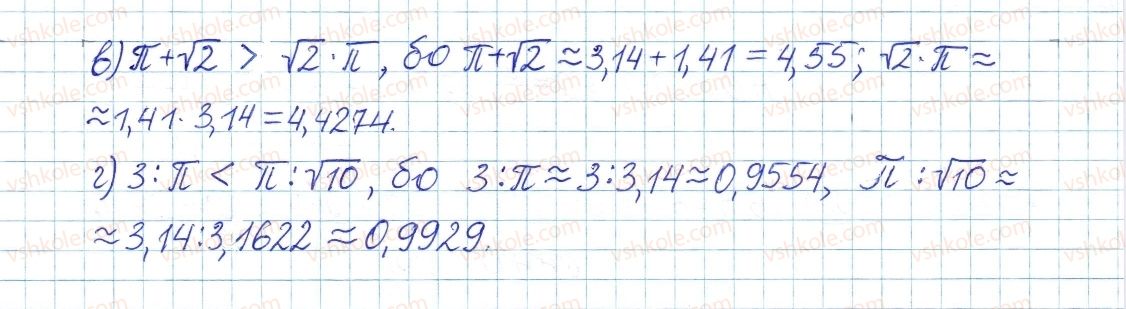 в) π+√2 > √2·π, бо π+√2 ≈ 3,14+1,41=4,55; √2·π ≈
≈1,41·3,14=4,4274.
г) 3:π < π:√10, бо 3:π≈3:3,14≈0,9554, π:√10 ≈
≈3,14:3,1622≈0,9929.